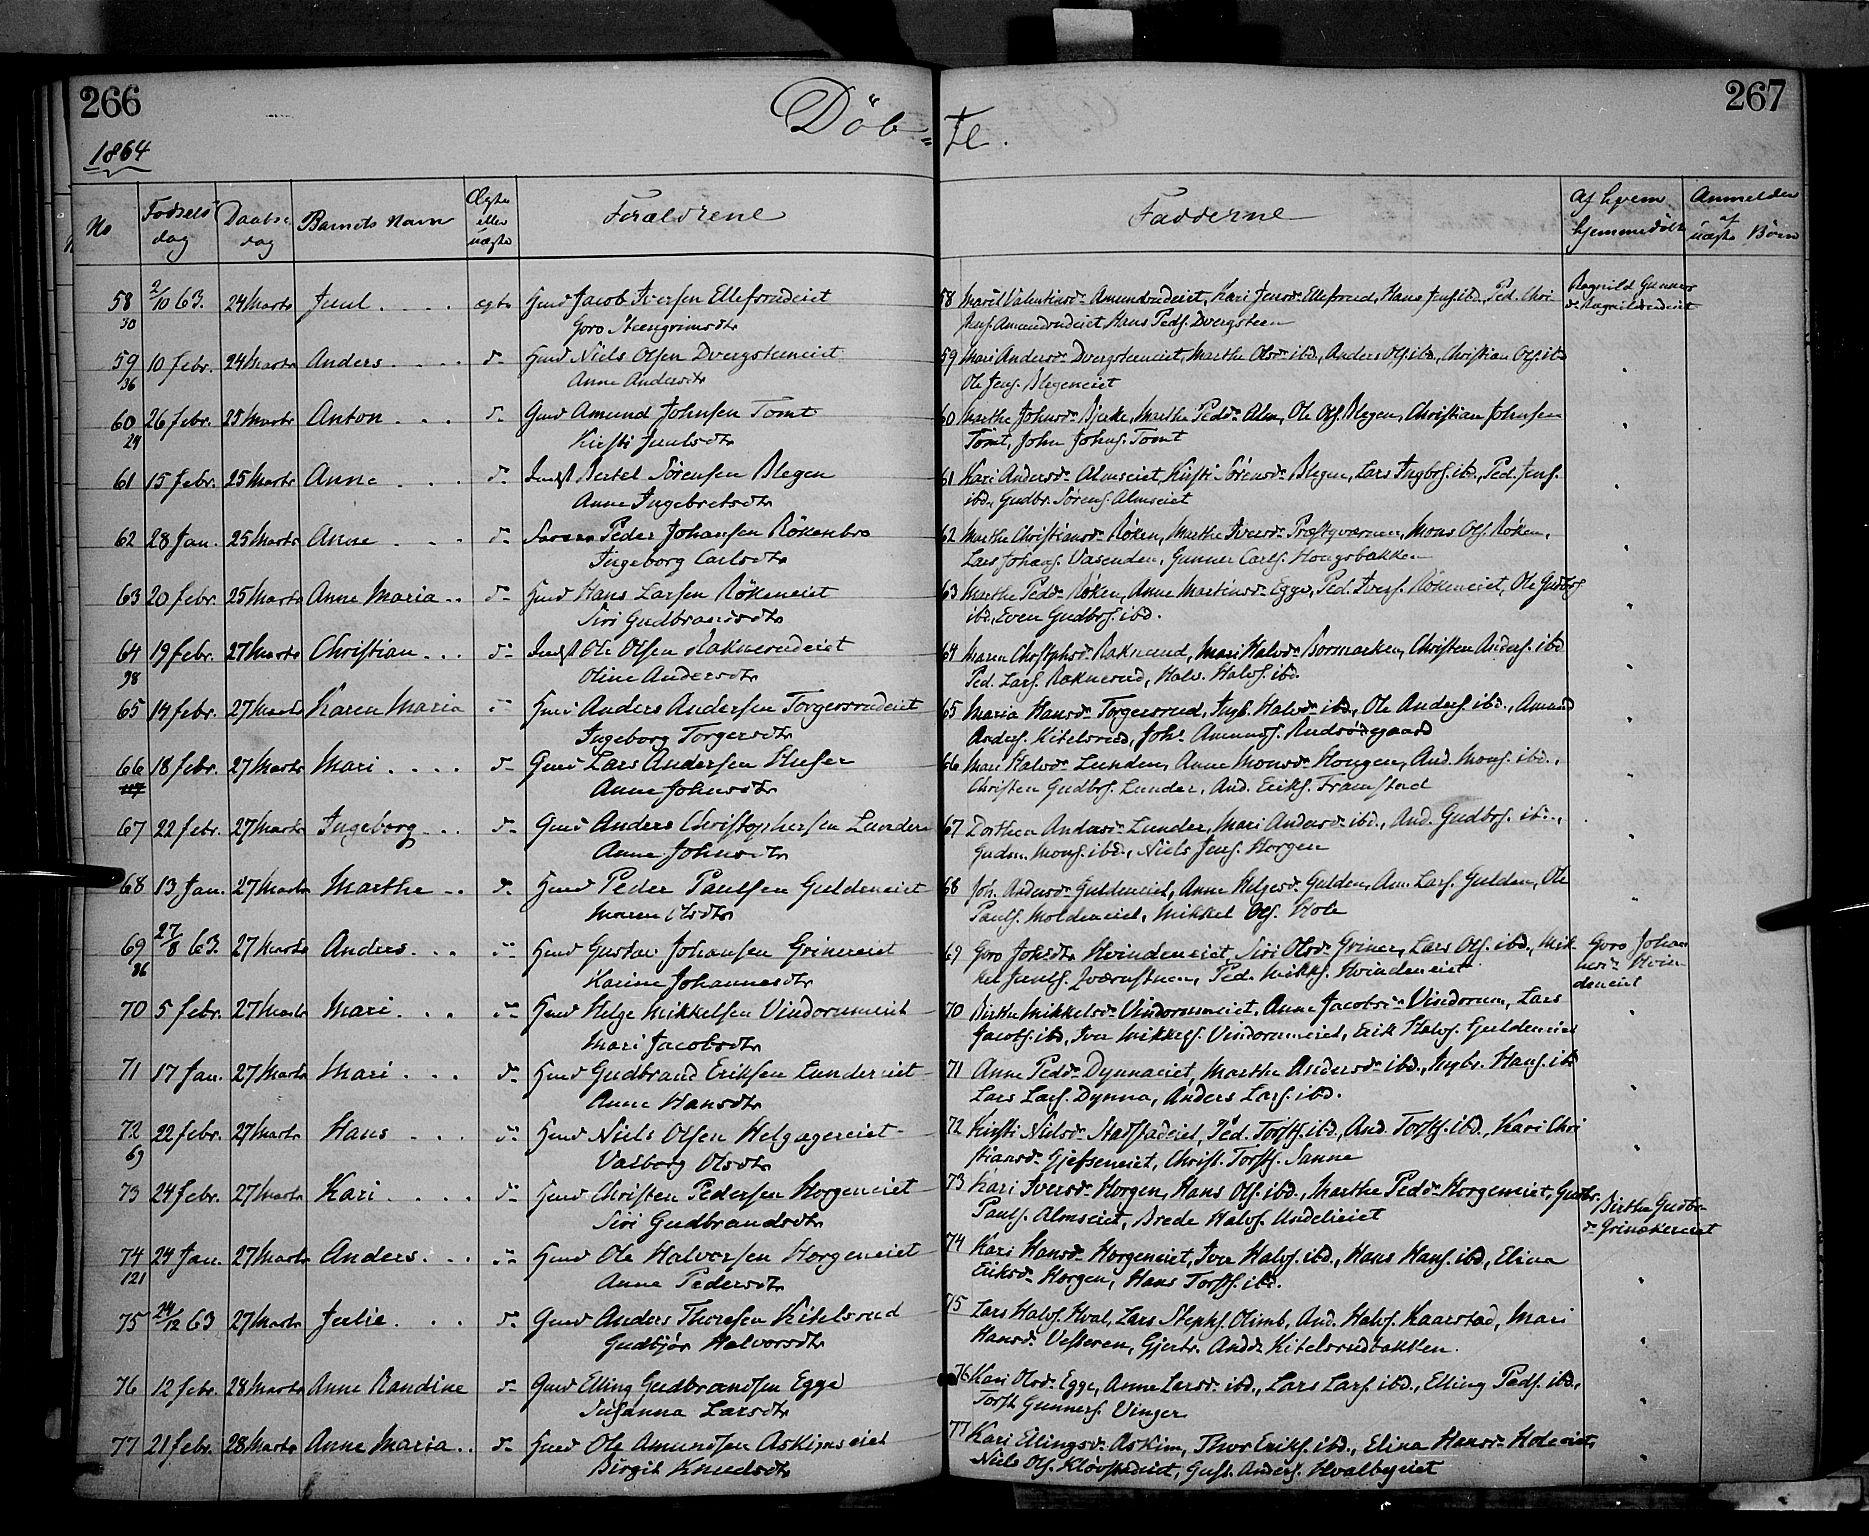 266
1864
Döb=
No
Fødsels dag
Daabs dag
Barnets Navn
Ægte eller uægte
Forældrene
58 2/10 63. 24 Marts Juul . . . . ægte Husm Jacob Iversen Ellefsrudeiet
30 Goro Steengrimsdtr
59 10 febr. 24 Marts Anders . . . . d- Husm Niels Olsen Dvergsteneiet
36 Anne Andersdtr
60 26 febr. 25 Marts Anton . . . d- Gmd Amund Johnsen Tomt
24 Kirsti Juulsdtr
61 15 febr. 25 Marts Anne . . . d- Indst Bertel Sørensen Blegen
Anne Ingebretsdtr
62 28 Jan. 25 Marts Anne . . . d- Peder Johansen Rökenbro
Ingeborg Carlsdtr
63 20 febr. 25 Marts Anne Maria . . d- Husm Hans Larsen Rökeneiet
Siri Gudbrandsdtr
64 19 febr. 27 Marts Christian . . . d- Indst Ole Olsen Raknerudeiet
98 Oline Andersdtr
65 14 febr. 27 Marts Karen Maria d- Husm Anders Andersen Torgersrudeiet
Ingeborg Torgersdtr
66 18 febr. 27 Marts Mari . . . . d- Gmd Lars Andersen
Anne Johnsdtr
67 22 febr. 27 Marts Ingeborg . . . d- Gmd Anders Christophersen Lunder
Anne Johnsdtr
68 13 Jan. 27 Marts Marthe . . d- Husm Peder Paulsen Guldeneiet
Maren Olsdtr
69 27/8 63. 27 Marts Anders . . . d- Husm Gustav Johansen Grinereiet
86 Karine Johannesdtr
70 5 febr. 27 Marts Mari . . . d- Husm Helge Mikkelsen Vindorumeiet
Mari Jacobsdtr
71 17 Jan. 27 Marts Mari . . . d- Husm Gudbrand Eriksen Lundereiet
Anne Hansdtr
72 22 febr. 27 Marts Hans . . . d- Husm Niels Olsen Helgagereiet
69 Valborg Olsdtr
73 24 febr. 27 Marts Kari . . . . d- Husm Christen Pedersen Horgeneiet
Siri Gudbrandsdtr
74 24 Jan. 27 Marts Anders . . . d- Husm Ole Halvorsen Horgeneiet
121 Anne Pedersdtr
75 29/12 63 27 Marts Julie . . . d- Gmd Anders Thoresen Kitelsrud
Gudbjør Halvorsdtr
76 12 febr. 28 Marts Anne Randine d- Gmd Elling Gudbrandsen Egge
Susanna Larsdtr
77 21 febr. 28 Marts Anne Maria . . d- Husm Ole Amundsen Askimseiet
Birgit Knudsdtr
267
te.
Fadderne
Af hvem hjemmedöbt
Anmeldte af uægte Börn
58 Marit Valentinsd- Amundrudeiet, Kari Jensd- Ellefsrud, Hans Jens. ibd, Ped. Chri
Jens. Amundrudeiet, Hans Peds. Dvergsteen
Ragnild Gunners
d- Ragnildrudeiet
59 Mari Andersd- Dvergsteneiet, Marthe Olsd- ibd, Anders Ols. ibd, Christian Ols. ibd
Ole Jens. Blegeneiet
60 Marthe Johnsd- Bjerke, Marthe Pedd- Alm, Ole Ols. Blegen, Christian Johnsen
Tomt, John Johns. Tomt
61 Kari Andersd- Almseiet, Kirsti Sörensd- Blegen, Lars Ingbrs. ibd, Ped. Jens.
ibd, Gudbr. Sörens. Almseiet
62 Marthe Christiansd- Röken, Marthe Iversd- Præstqværnen, Mons Ols. Röken,
Lars Johans. Vasenden, Gunner Carls. Hougsbakken
63 Marthe Pedd- Röken, Anne Martinsd- Egge, Ped. Ivers. Rökeneiet, Ole Gudbrs
ibd, Even Gudbrs. ibd.
64 Maren Christophsd- Raknerud, Mari Halvsd- Bormarken, Christen Anders. ibd
Ped. Lars. Raknerud, Halv. Halvs. ibd.
65 Maria Hansd- Torgersrud, Ingb. Halvsd- ibd, Ole Anders. ibd, Amund
Anders. Kitelsrud, Johs Amunds. Rudsödegaard
66 Mari Halvsd- Lunden, Anne Monsd- Hougen, And. Mons. ibd.,
Christen Gudbrs. Lunder, And. Eriks. Framstad
67 Dorthea Andersd- Lunder, Mari Andersd- ibd, And. Gudbrs. ibd,
Gudm. Mons. ibd, Niels Jens. Horgen
68 Joh. Andersd- Guldeneiet, Anne Helgesd- Gulden, Am. Lars. Gulden, Ole
Pauls. Moldeneiet, Mikkel Ols. Hole
69 Goro Johsdtr Hvindeneiet, Siri Olsd- Griner, Lars Ols. ibd, Mik-
kel Juuls. Qværnstuen, Ped. Mikks. Hvindeneiet
Goro Johan
nesd- Hvin-
deneiet
70 Birthe Mikkelsd- Vindorumeiet, Anne Jacobsd- Vindorum, Lars
Jacobs. ibd, Iver Mikkels. Vindorumeiet, Erik Halvs. Guldeneiet
71 Anne Pedd- Dynnaeiet, Marthe Andersd- ibd, Ingbr. Hans. ibd
Lars Lars. Dynna, Anders Lars. ibd.
72 Kirsti Nielsd- Stadstadeiet, Ped. Torsts. ibd, And. Torsts. ibd, Kari Chri
stiansd- Gjefseneiet, Christ. Torsts. Sanne
73 Kari Iversd- Horgen, Hans Ols. ibd, Marthe Pedd- Horgeneiet, Gudbr.
Pauls. Almseiet, Brede Halvs. Undelieiet
Birthe Gudbr-
d- Grinakereiet
74 Kari Hansd- Horgeneiet, Iver Halvs. ibd, Hans Hans. ibd, Elina
Eriksd- Horgen, Hans Torsts. ibd.
75 Lars Halvs. Hval, Lars Stephs. Olimb, And. Halvs. Kaarstad, Mari
Hansd- Vesteren, Gjertr. Andd- Kitelsrudbakken.
76 Kari Olsd- Egge, Anne Larsd- ibd, Lars Lars. ibd, Elling Peds. ibd,
Torst. Gunners. Vinger
77 Kari Ellingsd- Askim, Thor Eriks. ibd, Elina Hansd- Holeeiet
Niels Ols. Klövstadeiet, Gust. Anders. Hvalbyeiet